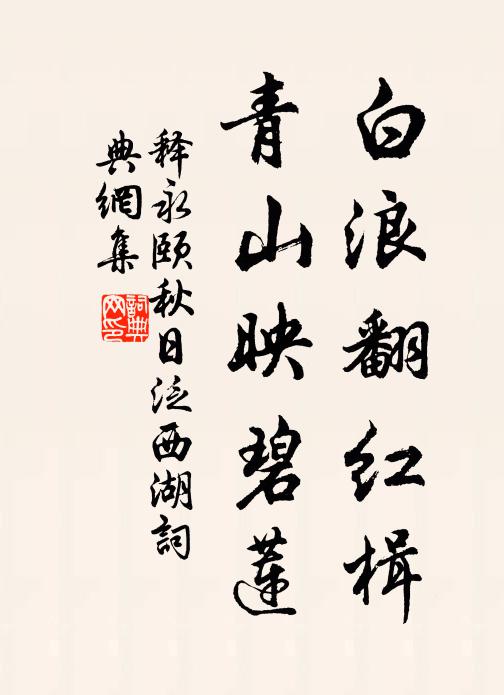 白浪翻红楫
青山映碧莲
释永颐秋日泛西湖詞
典網集
詞典網印